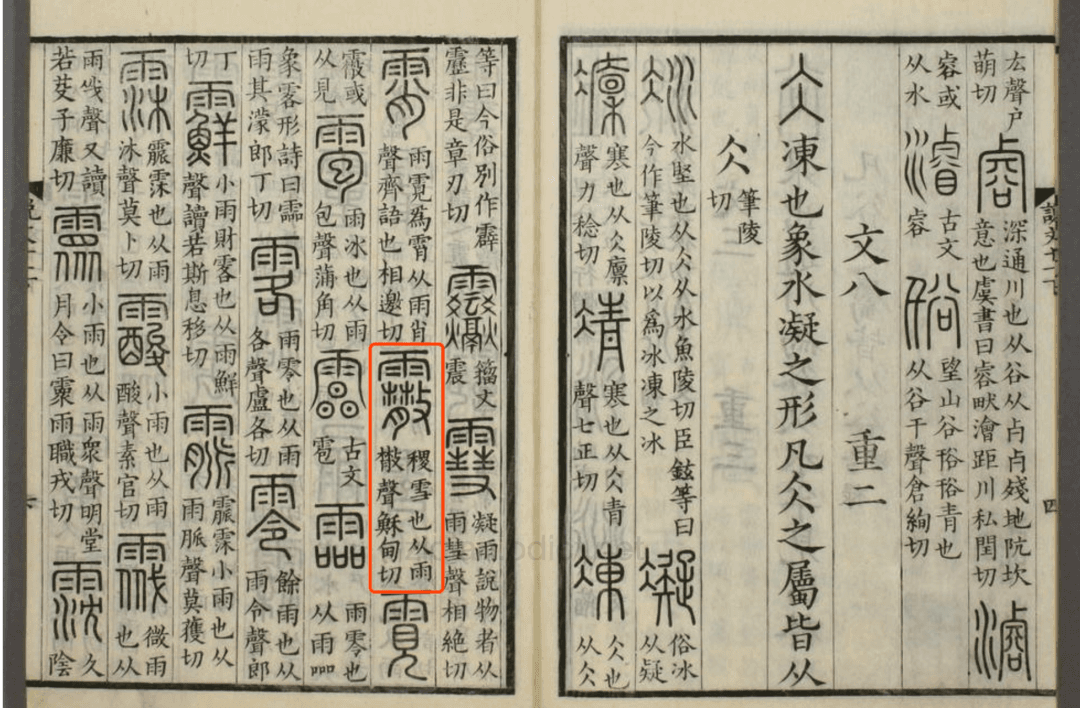 厷聲戶萌切 㕡 深通川也从谷从𣦵𣦵殘地阬坎意也虞書曰㕡畎澮距川私閏切 濬
㕡或从水 濬 古文㕡 谸 望山谷谸谸青也从谷千聲倉絢切
文八 重二
仌 凍也象水凝之形凡仌之屬皆从
仌 筆陵切
冰 水堅也从仌从水魚陵切臣鉉等曰今作筆陵切以爲冰凍之冰 凝 俗冰从疑
凜 寒也从仌廩聲力稔切 凊 寒也从仌青聲七正切 凍 仌也从仌
等曰今俗別作霹靂非是章刃切 籒文震 䨮 凝雨說物者从雨彗聲相絕切
霄 雨霓爲霄从雨肖聲齊語也相邀切 霰 稷雪也从雨㪔聲穌甸切 霓
霰或从見 雹 雨冰也从雨包聲蒲角切 古文雹 霝 雨零也从雨𠱠
象零形詩曰霝雨其濛郎丁切 䨣 雨零也从雨各聲盧各切 零 餘雨也从雨令聲郎
丁切 䨘 小雨財零也从雨鮮聲讀若斯息移切 霢 霢霂小雨也从雨脈聲莫獲切
霂 霢霂也从雨沐聲莫卜切 䨟 小雨也从雨酸聲素官切 䨙 微雨也从
雨韱聲又讀若芟子廉切 霥 小雨也从雨眾聲明堂月令曰霥雨職戎切 霃 久陰